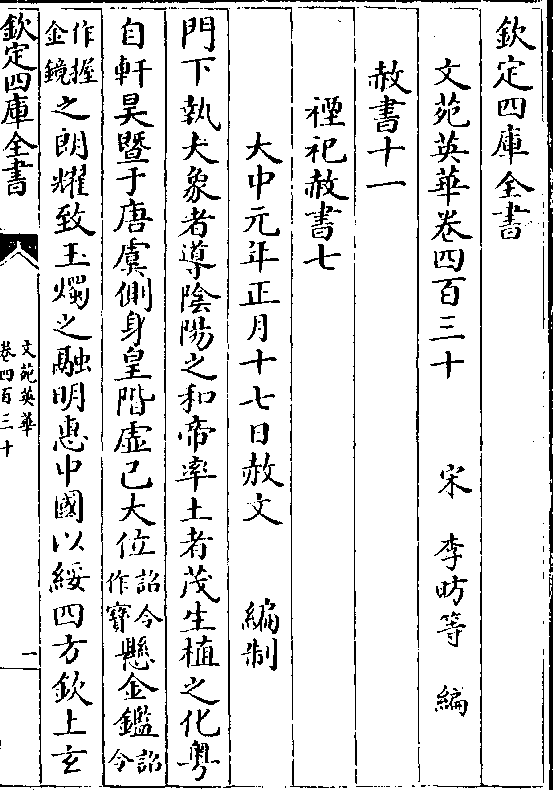 欽定四庫全書
文苑英華卷四百三十 宋 李昉等 編
赦書十一
禋祀赦書七
大中元年正月十七日赦文 編制
門下執大象者導陰陽之和帝率土者茂生植之化粤
自軒昊暨于唐虞側身皇階虚己大位詔令作寳懸金鑑詔令
作握金鏡之朗耀致玉燭之融明惠中國以綏四方欽上玄
欽定四庫全書
文苑英華
卷四百三十
一